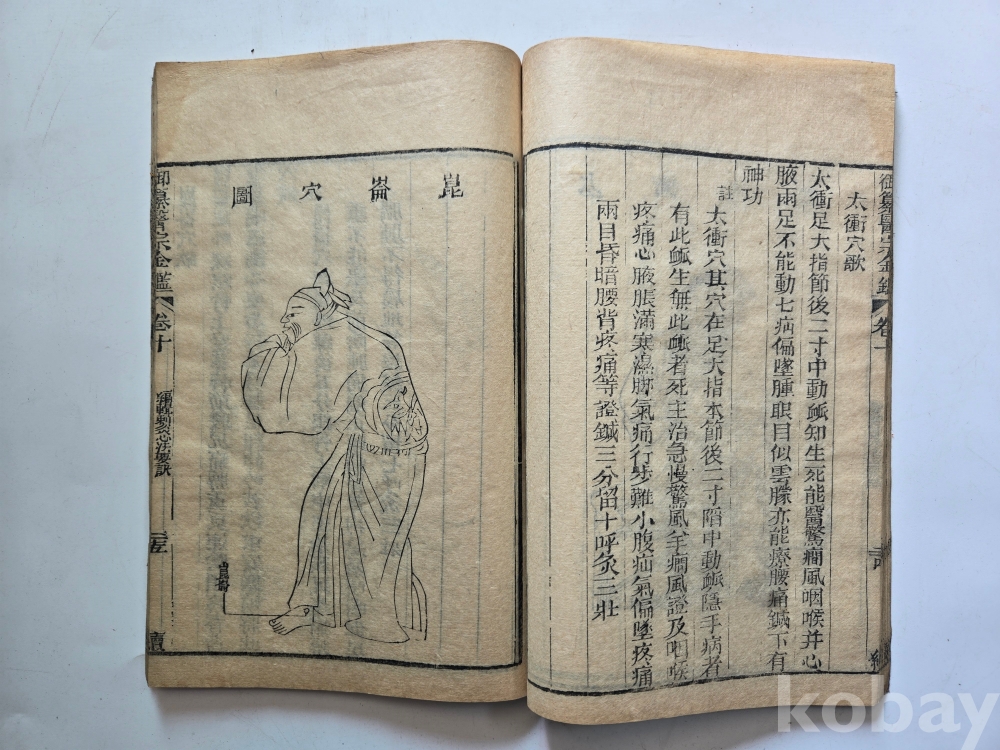 太衝穴歌
太衝足大指節後二寸中動䘑知生死能醫驚癇風咽喉并心
腋兩足不能動七病偏墜腫眼目似雲朦亦能療腰痛鍼下有
神功
註
太衝穴其穴在足大指本節後二寸陷中動䘑隱手病者
有此䘑生無此䘑者死主治急慢驚風羊癇風證及咽喉
疼痛心腋脹滿寒濕脚氣痛行步難小腹疝氣偏墜疼痛
兩目昏暗腰背疼痛等證鍼三分留十呼灸三壯
崑崙穴圖
崑崙
御纂醫宗金鑑
卷十
kobay